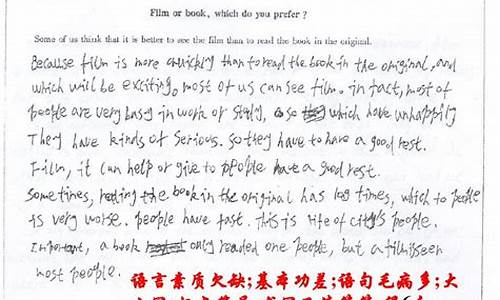 Film or book, which do you prefer ?
Some of us think that it is better to see the film than to read the book in the original.
Because film is more quickly than to read the book in the original, and
which will be exciting, most of us can see film. in fact, most of
people are very basy in work or study, so which have unhappily
They have kinds of serious. so they have to have a good rest.
Film, it can help or give to people have a good rest.
Sometimes, reding the book in the original has log times, which to people
is very worse. people have fast. This is life of city's people.
Important, a book only readed one people, but a film is seen
most people.
语言素质欠缺;基本功差;语句毛病多;大